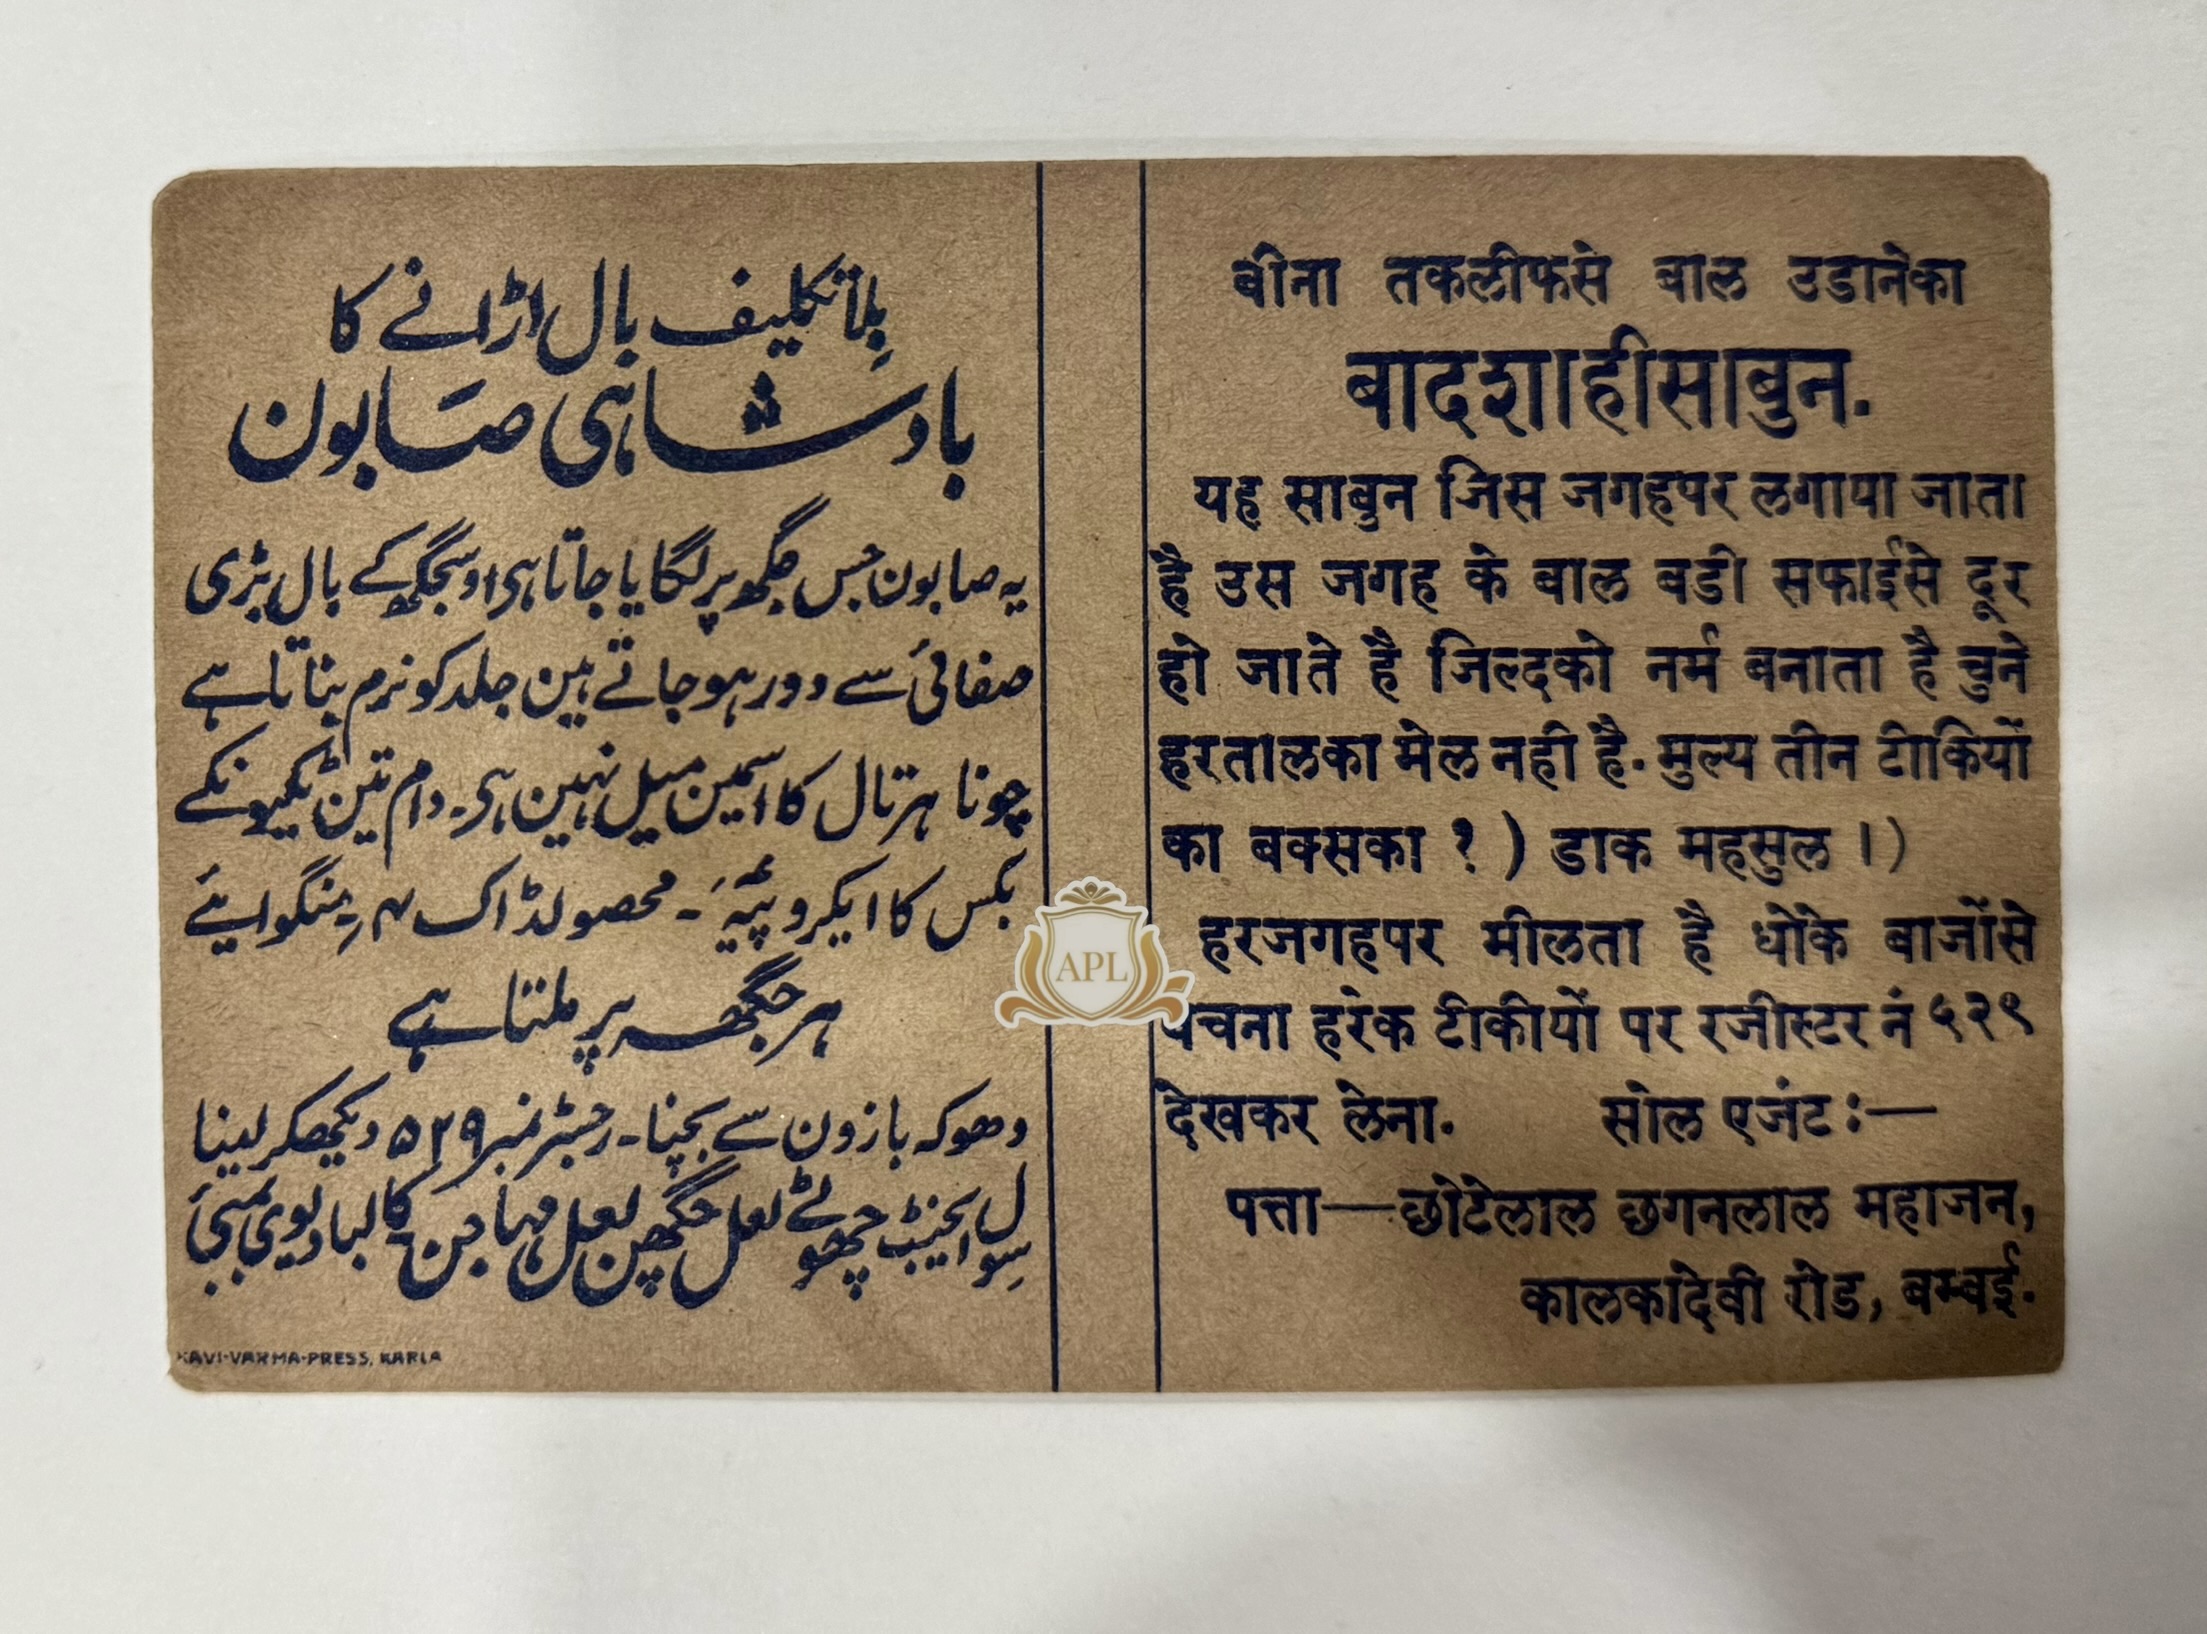 بلا تکلیف بال اڑانے کا
بادشاہی صابون
یہ صابون جس جگھ پر لگایا جاتا ہی اوسجگھ کے بال بڑی
صفائی سے دور ہو جاتے ہین جلد کو نرم بناتا ہے
چونا ہرتال کا اسمین میل نہین ہی۔ دام تین ٹکیونکے
بکس کا ایکروپیہ۔ محصولڈاک ۴؍ منگوایئے
ہر جگھہ پر ملتا ہے
دھوکہ بازون سے بچنا۔ رجسٹر نمبر ۵۲۹ دیکھکر لینا
سول ایجنٹ چھوٹے لعل جگھن لعل مہاجن کالبادیوی بمبئی
RAVI-VARMA-PRESS, KARLA
बीना तकलीफसे बाल उडानेका
बादशाहीसाबुन.
यह साबुन जिस जगहपर लगाया जाता
है उस जगह के बाल बडी सफाईसे दूर
हो जाते है जिल्दको नर्म बनाता है चुने
हरतालका मेल नही है. मुल्य तीन टीकियों
का बक्सका १) डाक महसुल ।)
हरजगहपर मीलता है धोके बाजोंसे
बचना हरेक टीकीयों पर रजीस्टर नं ५२९
देखकर लेना. सोल एजंट :—
पत्ता—छोटेलाल छगनलाल महाजन,
कालकादेवी रोड, बम्बई.
APL